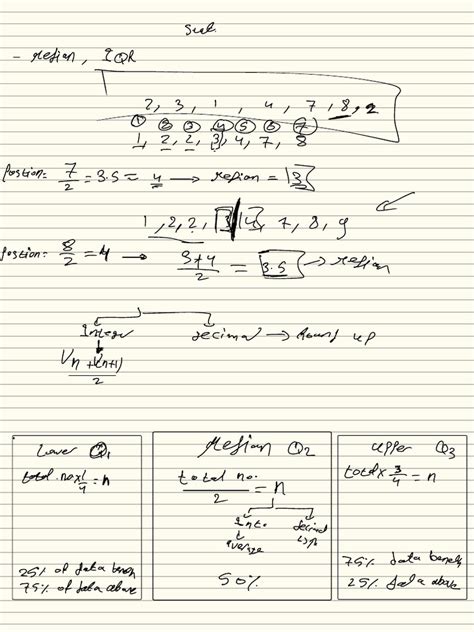 - Median, IQR
2, 3, 1, 4, 7, 8, 2
① ② ③ ④ ⑤ ⑥ ⑦
1, 2, 2, 3, 4, 7, 8
Position = 7/2 = 3.5 ≈ 4 → Median = 3
1, 2, 2, 3, 4, 7, 8, 9
Position = 8/2 = 4 → (3+4)/2 = 3.5 → Median
Integer decimal → Round up
(Vn + V(n+1))/2
Lower Q1
total no x 1/4 = n
25% of data beneath
75% of data above
Median Q2
total no. / 2 = n
Int. decimal
average ↑
50%
Upper Q3
total x 3/4 = n
75% data beneath
25% data above